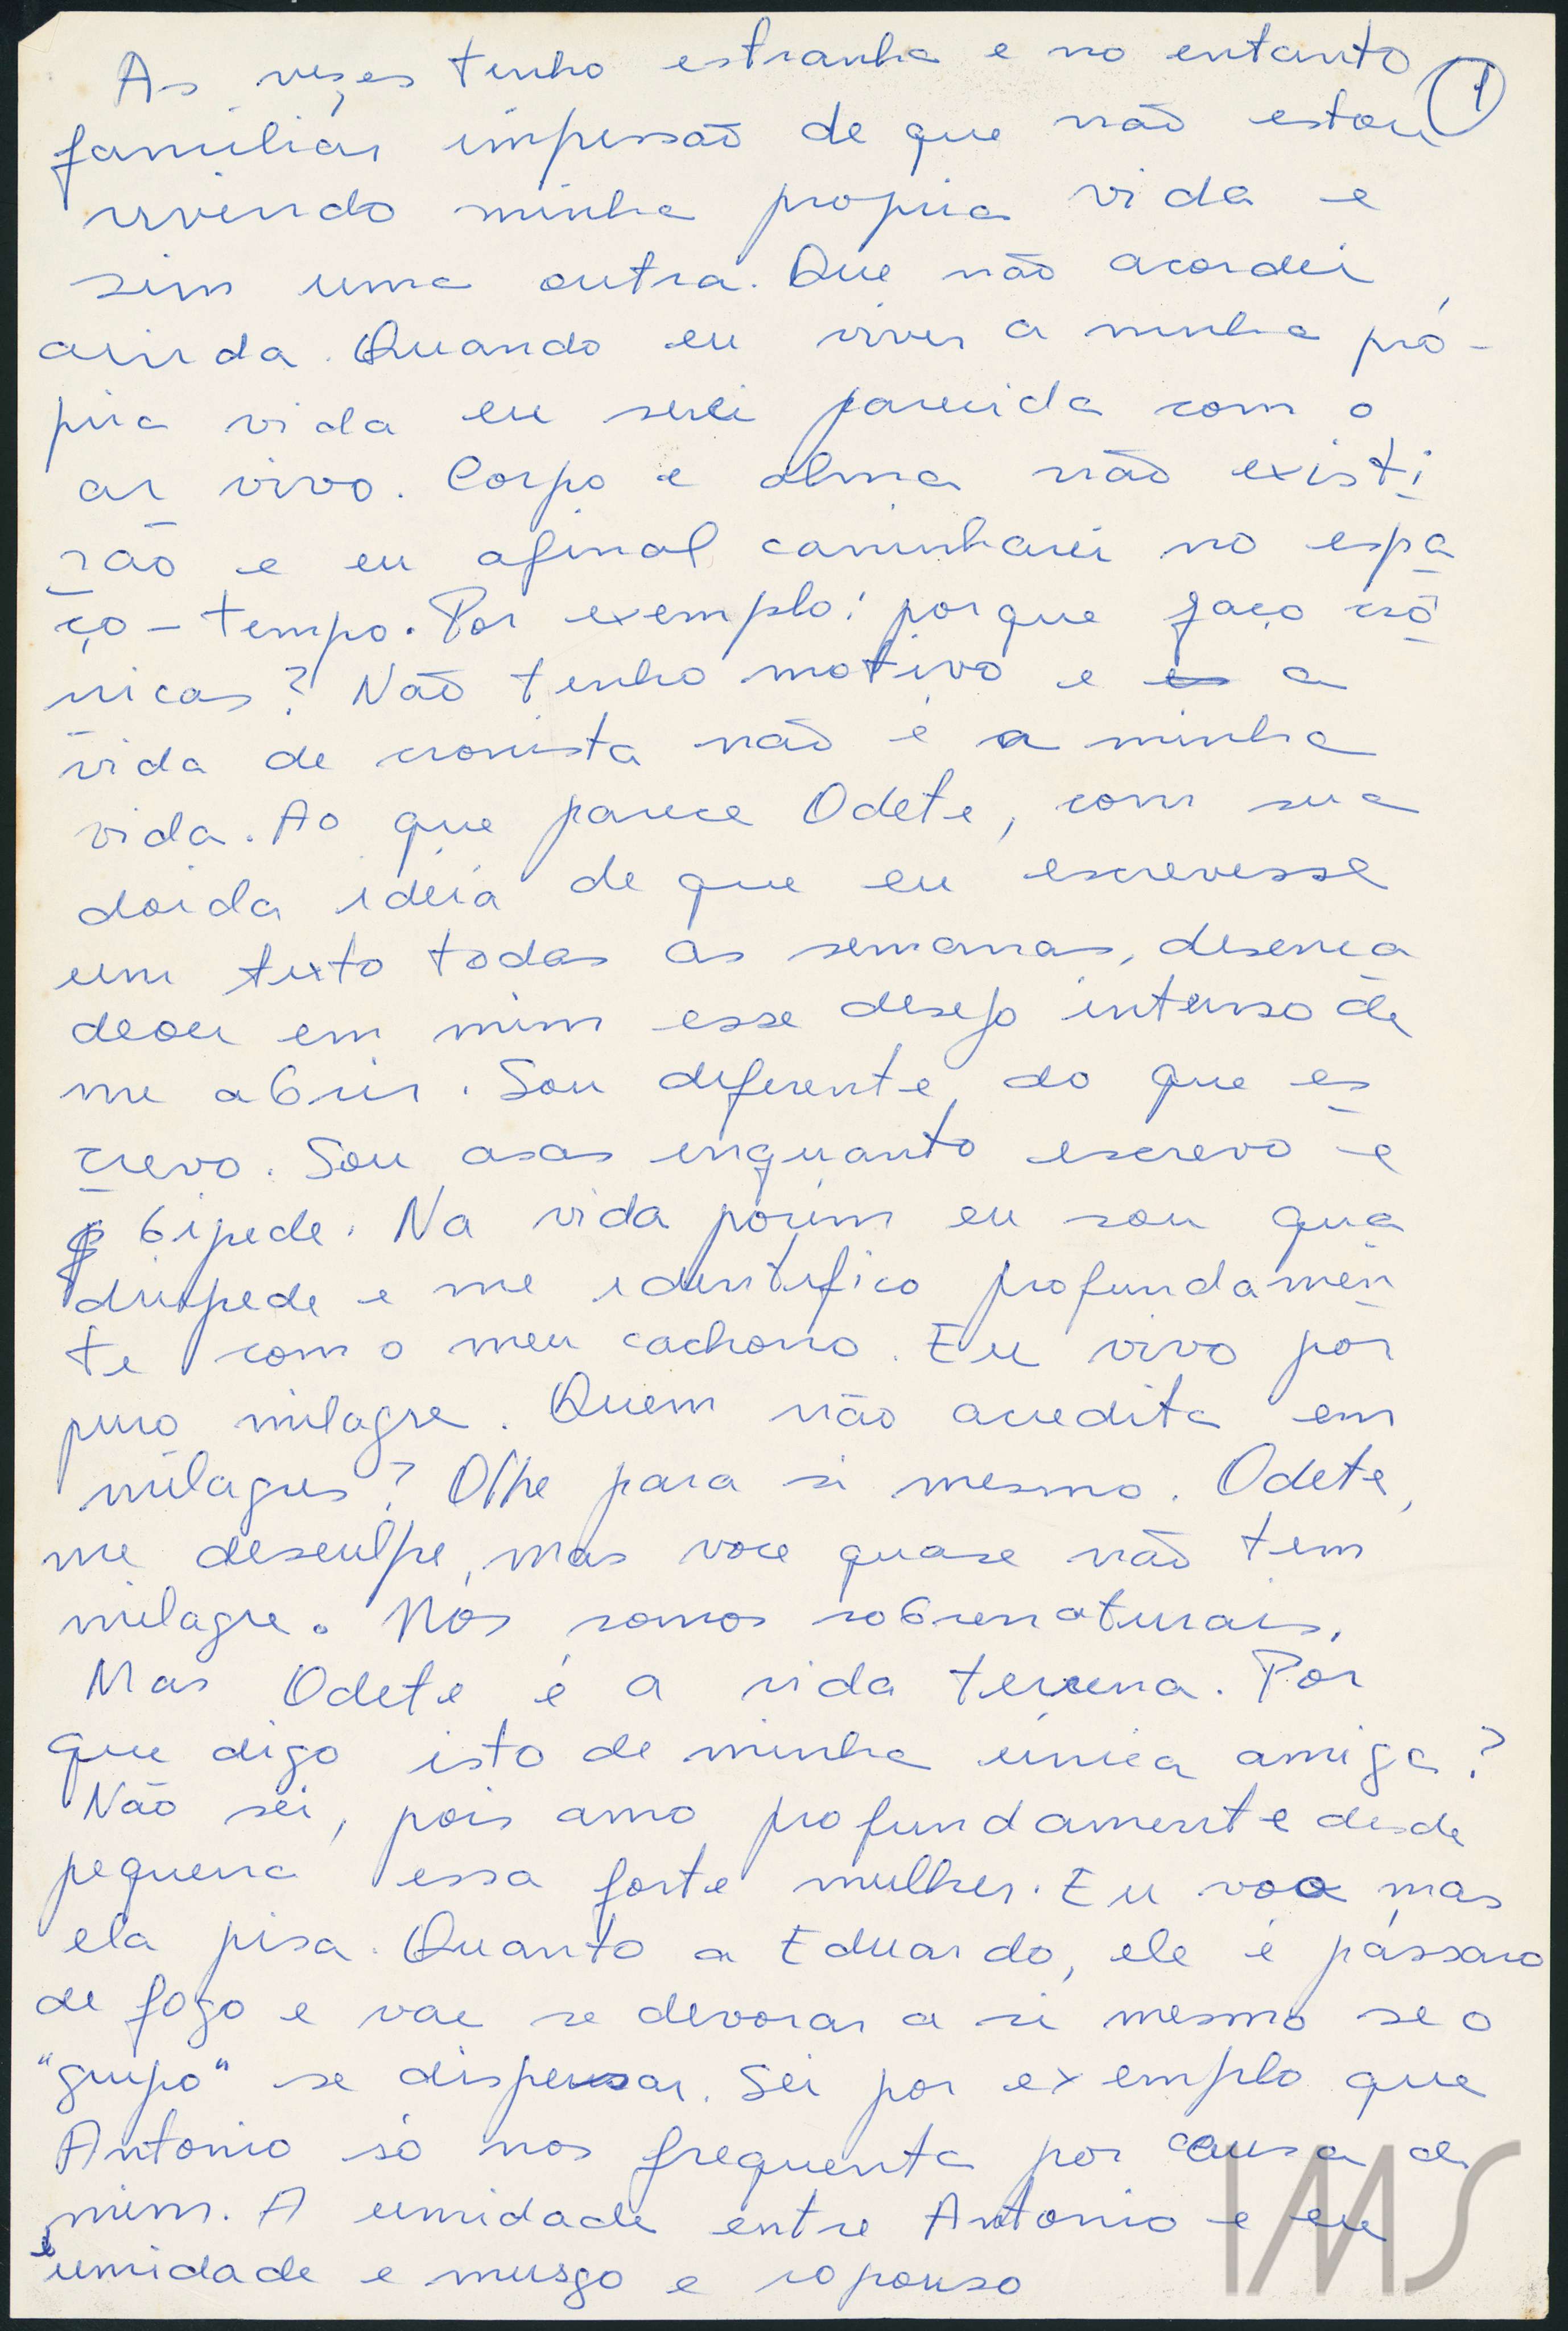 As vezes tenho estranha e no entanto
①
familiar impressão de que não estou
vivendo minha propria vida e
sim uma outra. Que não acordei
ainda. Quando eu viver a minha pró-
pria vida eu serei parecida com o
ar vivo. Corpo e alma não existi
rão e eu afinal caminharei no espa
ço-tempo. Por exemplo: porque faço crô
nicas? Não tenho motivo e a
vida de cronista não é a minha
vida. Ao que parece Odete, com sua
doida idéia de que eu escrevesse
um texto todas as semanas, desenca
deou em mim esse desejo intenso de
me abrir. Sou diferente do que es
crevo. Sou asas enquanto escrevo e
bípede. Na vida porém eu sou qua
drúpede e me identifico profundamen
te com o meu cachorro. Eu vivo por
puro milagre. Quem não acredita em
milagres? Olhe para si mesmo. Odete,
me desculpe, mas voce quase não tem
milagre. Nós somos sobrenaturais.
Mas Odete é a vida terrena. Por
que digo isto de minha única amiga?
Não sei, pois amo profundamente desde
pequena essa forte mulher. Eu voo mas
ela pisa. Quanto a Eduardo, ele é pássaro
de fogo e vai se devorar a si mesmo se o
"grupo" se dispersar. Sei por exemplo que
Antonio só nos frequenta por causa de
mim. A umidade entre Antonio e eu
é umidade e musgo e
IMS